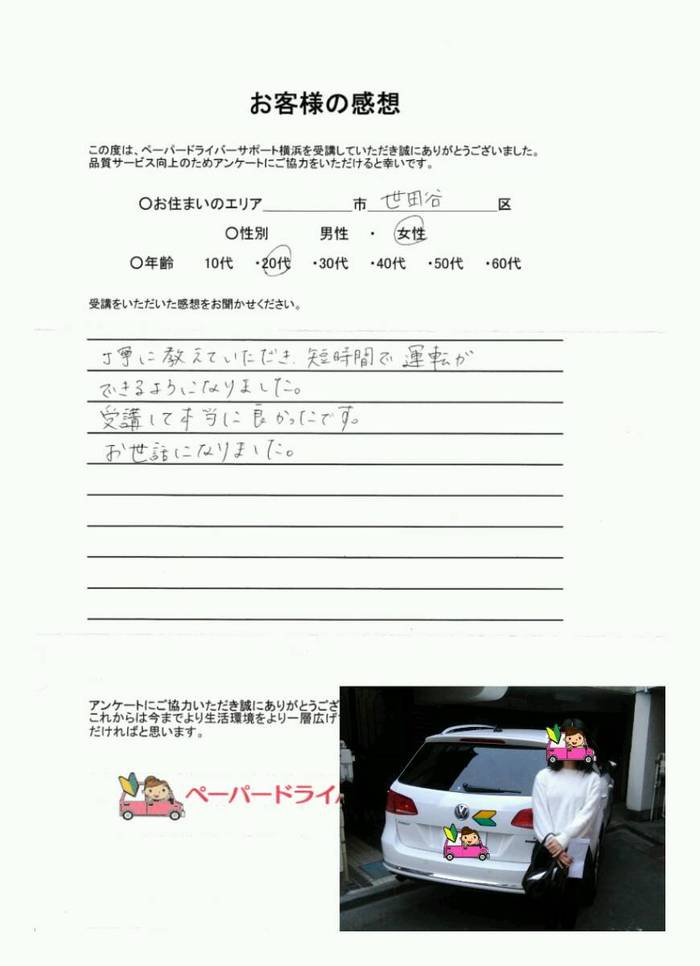 お客様の感想
この度は、ペーパードライバーサポート横浜を受講していただき誠にありがとうございました。
品質サービス向上のためアンケートにご協力をいただけると幸いです。
〇お住まいのエリア＿＿＿＿＿市 世田谷 区
〇性別 男性 ・ 女性
〇年齢 10代 ・20代 ・30代 ・40代 ・50代 ・60代
受講をいただいた感想をお聞かせください。
丁寧に教えていただき、短時間で運転が
できるようになりました。
受講して本当に良かったです。
お世話になりました。
アンケートにご協力いただき誠にありがとうござ
これからは今までより生活環境をより一層広げ
だければと思います。
ペーパードライ